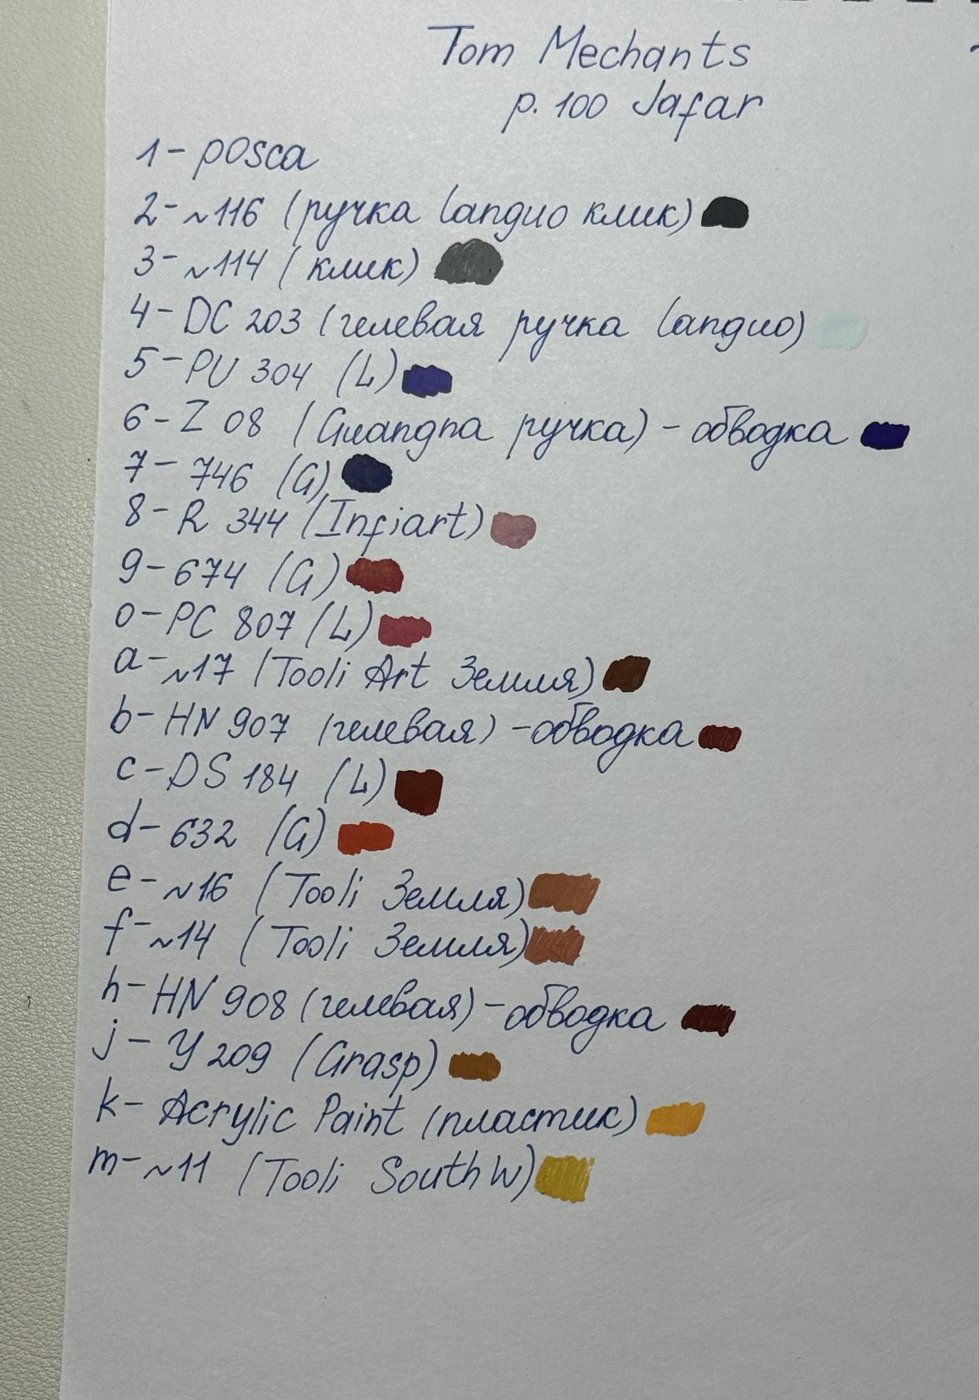 Tom Mechants
p. 100 Jafar
1 - posca
2 - ~116 (ручка Languo клик)
3 - ~114 (клик)
4 - DC 203 (гелевая ручка Languo)
5 - PU 304 (L)
6 - Z 08 (Guangna ручка) - обводка
7 - 746 (G)
8 - R 344 (Infiart)
9 - 674 (G)
0 - PC 807 (L)
a - ~17 (Tooli Art Земля)
b - HN 907 (гелевая) - обводка
c - DS 184 (L)
d - 632 (G)
e - ~16 (Tooli Земля)
f - ~14 (Tooli Земля)
h - HN 908 (гелевая) - обводка
j - Y 209 (Grasp)
k - Acrylic Paint (пластик)
m - ~11 (Tooli South W)